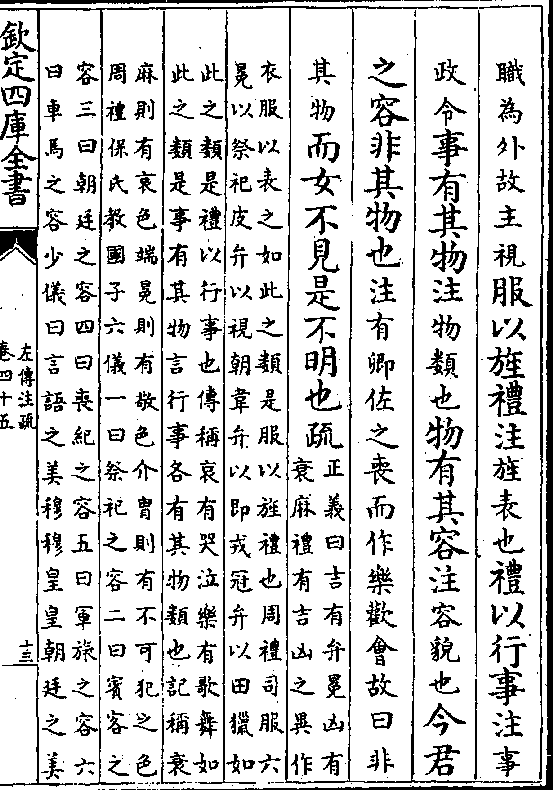 職為外故主視服以旌禮注旌表也禮以行事注事
政令事有其物注物類也物有其容注容貌也今君
之容非其物也注有卿佐之喪而作樂歡會故曰非
其物而女不見是不明也疏
正義曰吉有弁冕凶有
衰麻禮有吉凶之異作
衣服以表之如此之類是服以旌禮也周禮司服六
冕以祭祀皮弁以視朝韋弁以即戎冠弁以田獵如
此之類是禮以行事也傳稱哀有哭泣樂有歌舞如
此之類是事有其物言行事各有其物類也記稱衰
麻則有哀色端冕則有敬色介冑則有不可犯之色
周禮保氏教國子六儀一曰祭祀之容二曰賓客之
容三曰朝廷之容四曰喪紀之容五曰軍旅之容六
曰車馬之容少儀曰言語之美穆穆皇皇朝廷之美
欽定四庫全書
左傳注疏
卷四十五
十三